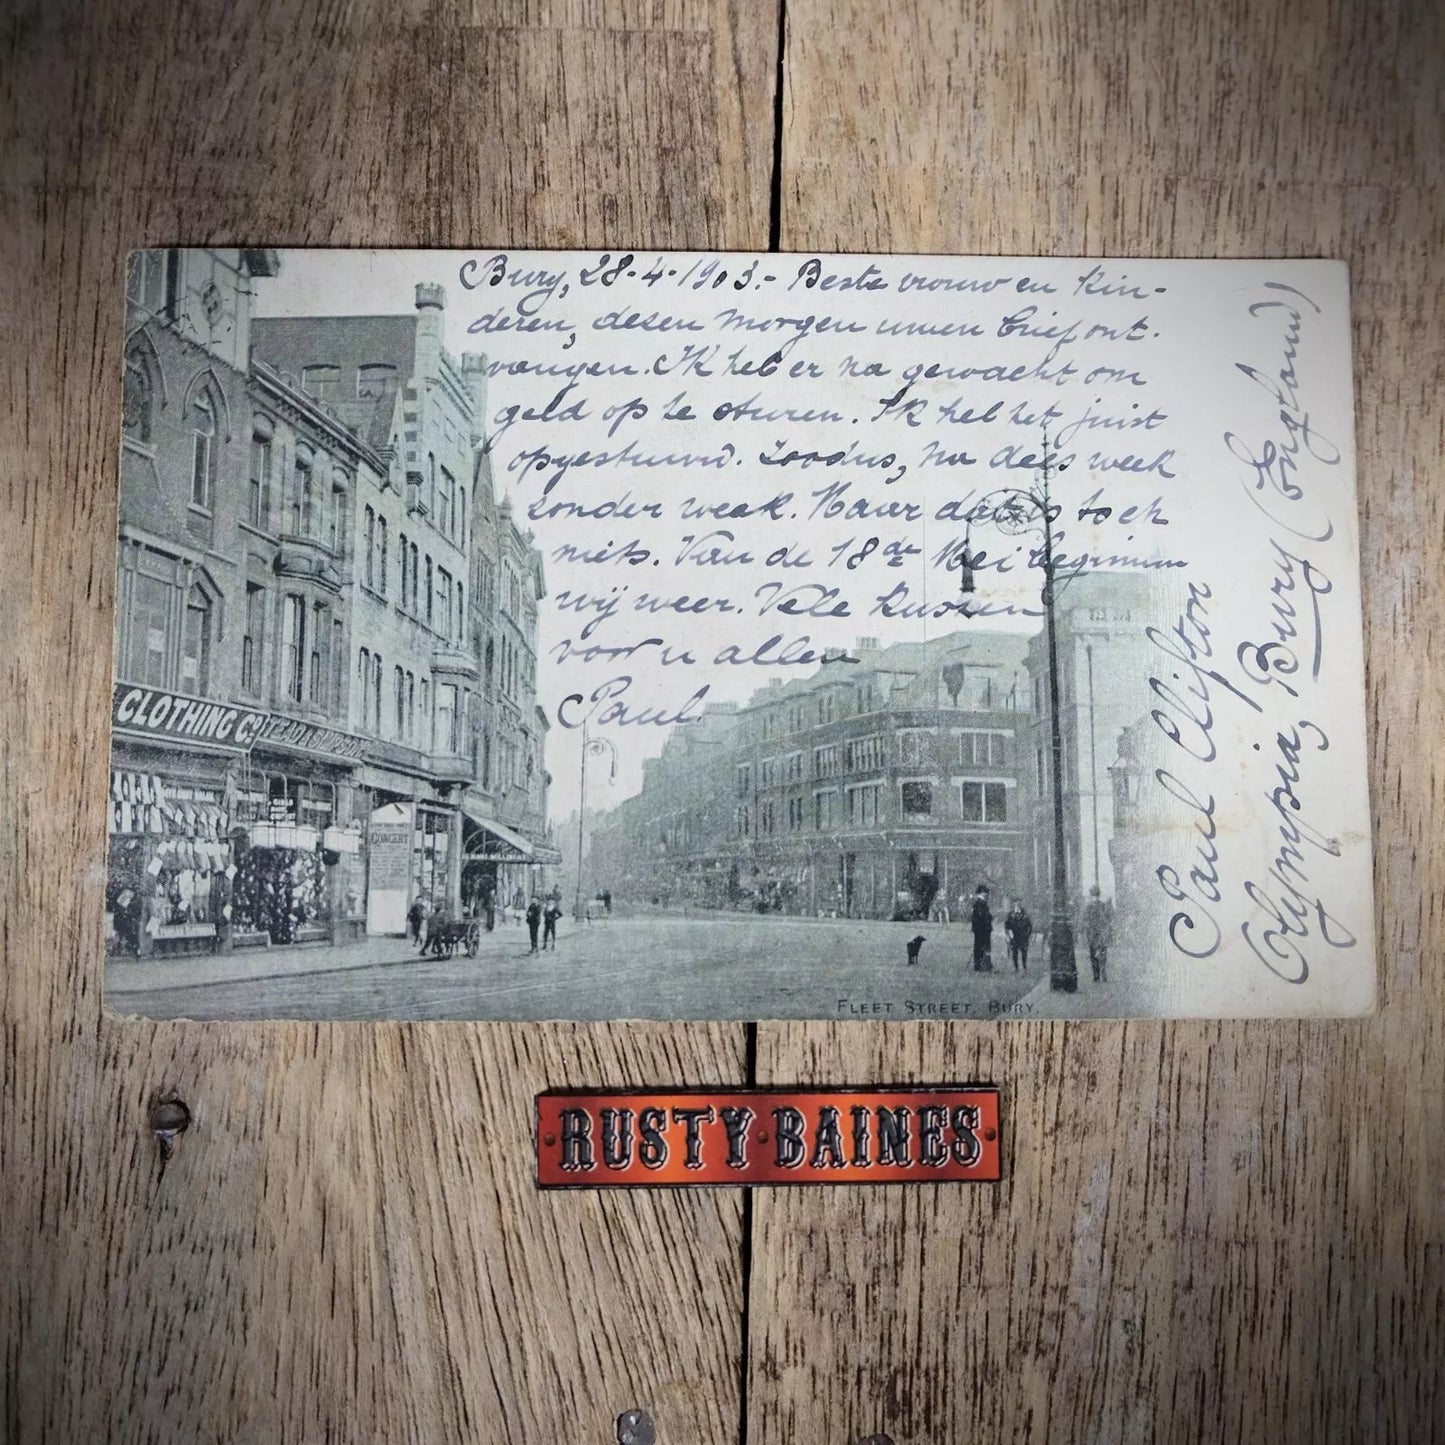 Bury, 28-4-1903.- Beste vrouw en kin-
deren, desen morgen uwen brief ont-
vangen. Ik heb er na gewacht om
geld op te sturen. Ik heb het juist
opgestuurd. Zoodus, na dees week
zonder werk. Maar dat is toch
niets. Van de 18de Mei beginnen
wij weer. Vele kussen
voor u allen
Paul.
Paul Clifton
Olympia, Bury (England)
CLOTHING Co
CONCERT
FLEET STREET, BURY.
RUSTY BAINES